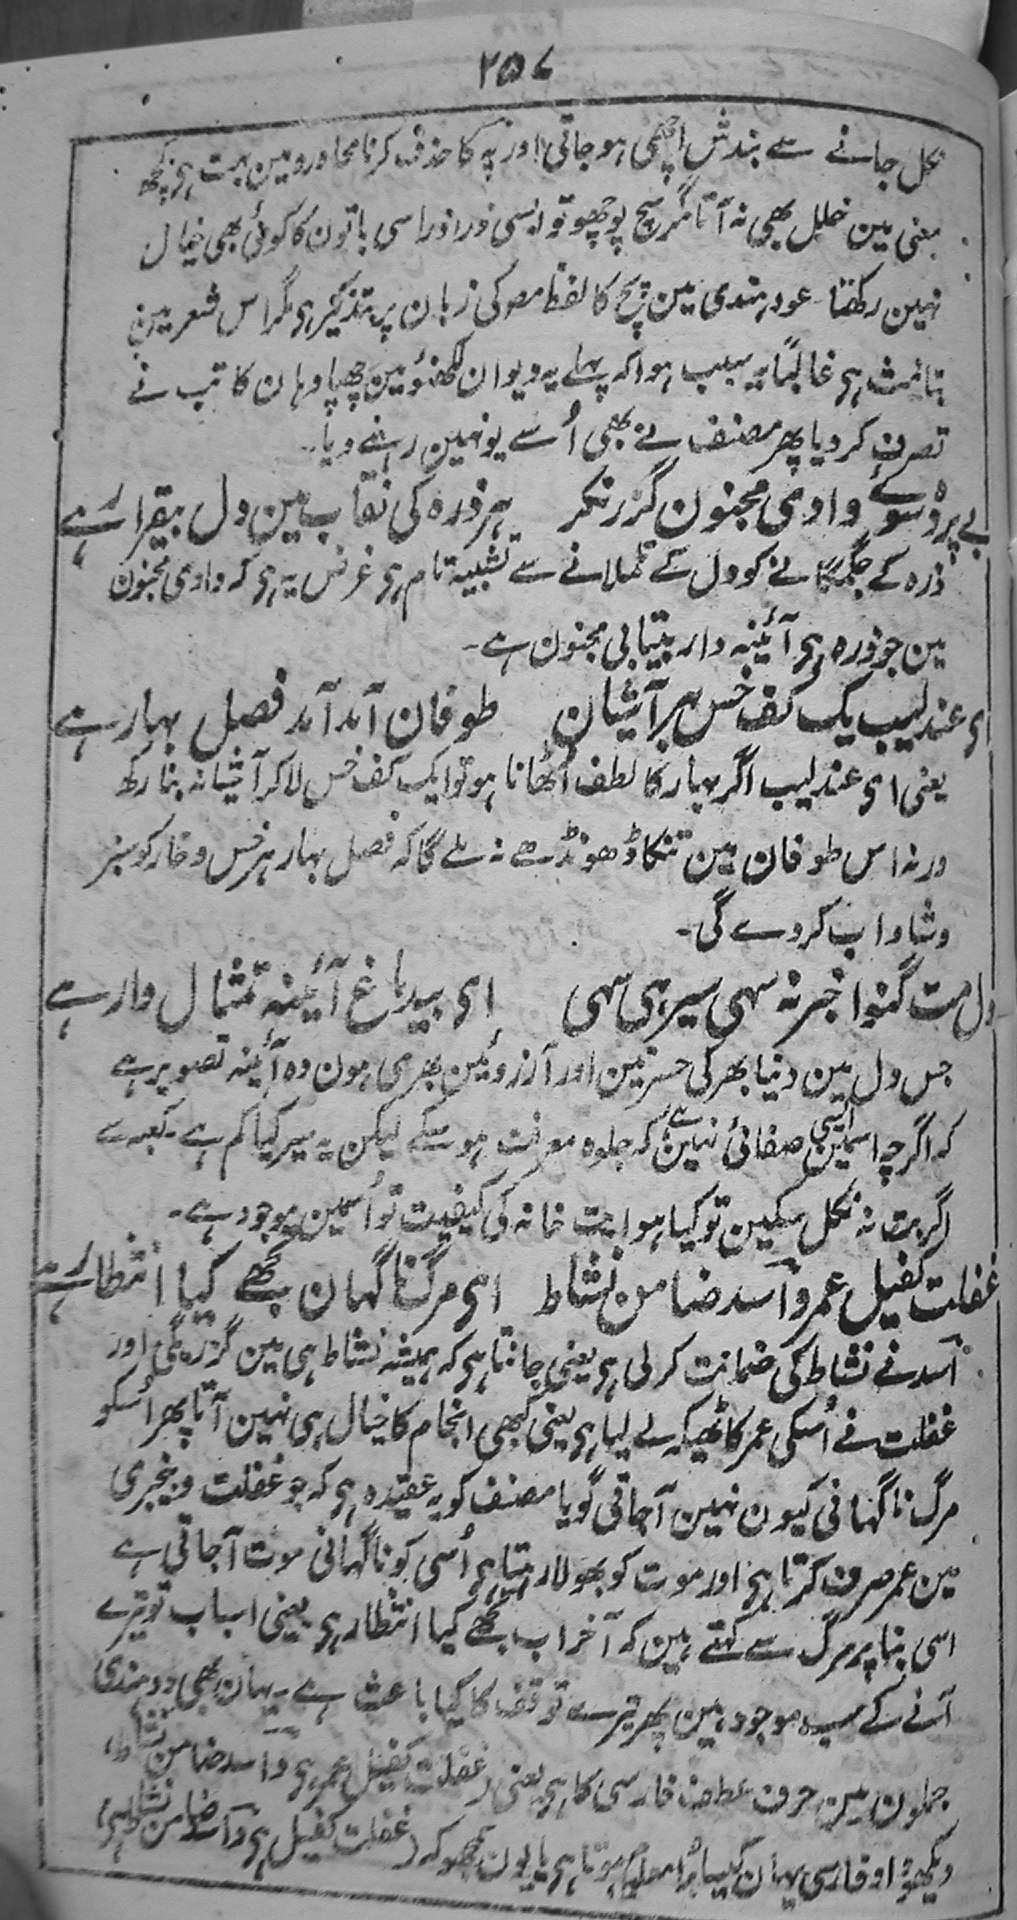 ۲۵۷
نکل جانے سے بندش اچھی ہو جاتی اور پہ کا حذف کرنا محاورہ مین بہت ہے کچھ
معنی مین خلل بھی نہ آتا مگر سچ پوچھو تو ایسی ذرا ذرا سی باتون کا کوئی بھی خیال
نہین رکھتا۔ عود ہندی مین طرح کا لفظ مصہ کی زبان پر بتذکیر ہی مگر اس شعر مین
بتانیث ہی غالباً یہ سبب ہوا کہ پہلے یہ دیوان لکھنؤ مین چھپا وہان کاتب نے
تصرف کر دیا پھر مصنف نے بھی اُسے یونہین رہنے دیا۔
بے پردہ سوئے وادی مجنون گزر نکر ہر ذرہ کی نقاب مین دل بیقرار ہے
ذرہ کے جگمگانے کو دل کے تلملانے سے تشبیہ تام ہی غرض یہ ہی کہ وادی مجنون
مین جو ذرہ ہی آئینہ دار بیتابی مجنون ہے۔
ای عندلیب یک کف خس بہر آشیان طوفان آمد آمد فصل بہار ہے
یعنی ای عندلیب اگر بہار کا لطف اُٹھانا ہو تو ایک کف خس لا کر آشیانہ بنا رکھ
ورنہ اس طوفان مین تنکا ڈھونڈھے نہ ملے گا کہ فصل بہار ہر خس و خار کو سبز
و شاداب کر دے گی۔
دل مت گنوا خبر نہ سہی سیر ہی سہی ای بیدماغ آئینہ تمثال دار ہے
جس دل مین دنیا بھر کی حسرتین اور آرزوئین بھری ہون وہ آئینہ تصویر ہے
کہ اگرچہ اسمین ایسی صفائی نہین ہے کہ جلوہ معرفت ہو سکے لیکن یہ سیر کیا کم ہے۔ کعبہ سے
اگر بت نہ نکل سکین تو کیا ہوا بت خانہ کی کیفیت تو اُسمین موجود ہے۔
غفلت کفیل عمر و اسد ضامن نشاط ای مرگ ناگہان تجھے کیا انتظار ہے
اسد نے نشاط کی ضمانت کر لی ہی یعنی جانتا ہی کہ ہمیشہ نشاط ہی مین گزرے گی اور
غفلت نے اُسکی عمر کا ٹھیکہ لے لیا ہی یعنی کبھی انجام کا خیال ہی نہین آتا پھر اُسکو
مرگ ناگہانی کیون نہین آجاتی گویا مصنف کو یہ عقیدہ ہی کہ جو غفلت و بیخبری
مین عمر صرف کرتا ہی اور موت کو بھولا رہتا ہی اُسی کو ناگہانی موت آجاتی ہے
اسی بنا پر مرگ سے کہتے ہین کہ آخر اب تجھے کیا انتظار ہی یعنی اسباب تو تیرے
آنے کے سب موجود ہین پھر تیرے توقف کا کیا باعث ہے۔ یہان بھی دو ہندی
جملون مین حرف عطف فارسی کا ہی یعنی (غفلت کفیل عمر ہی و اسد ضامن نشاط)
دیکھو واو فارسی یہان کیسا بُرا معلوم ہوتا ہی یا یون سمجھو کہ (غفلت کفیل ہی و اسد ضامن نشاط ہی)